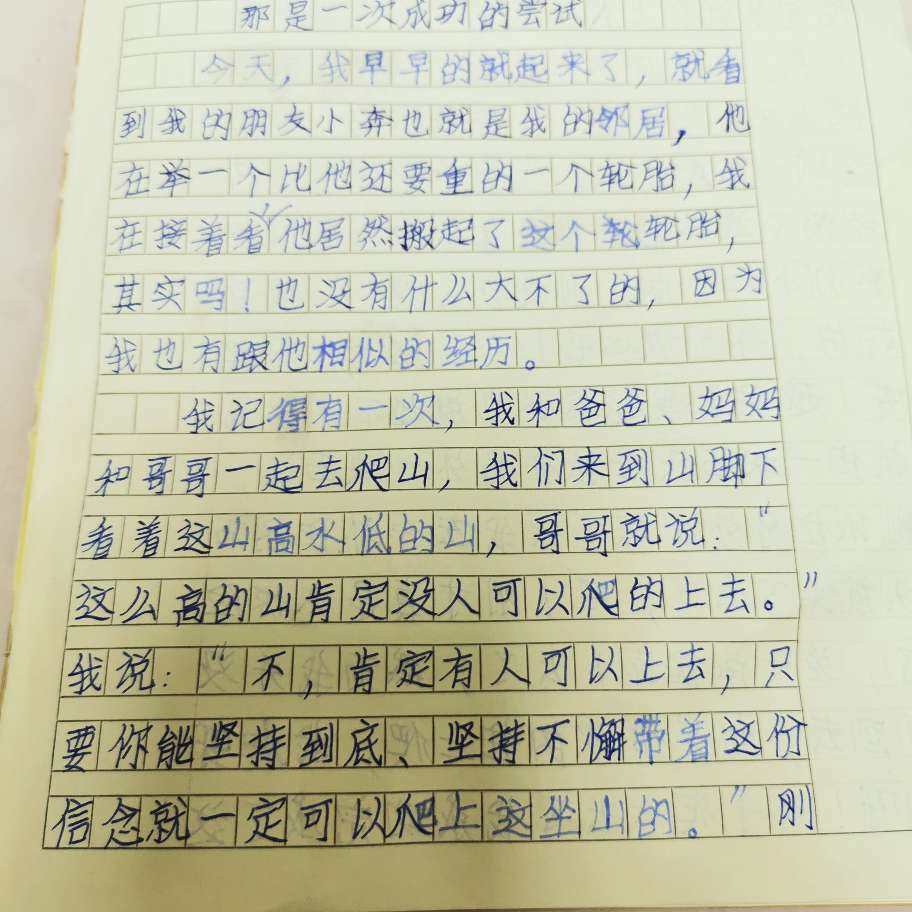 那是一次成功的尝试
今天，我早早的就起来了，就看
到我的朋友小奔也就是我的邻居，他
在举一个比他还要重的一个轮胎，我
在接着看他居然搬起了这个轮轮胎，
其实吗！也没有什么大不了的，因为
我也有跟他相似的经历。
我记得有一次，我和爸爸、妈妈
和哥哥一起去爬山，我们来到山脚下
看着这山高水低的山，哥哥就说：“
这么高的山肯定没人可以爬的上去。”
我说：“不，肯定有人可以上去，只
要你能坚持到底、坚持不懈带着这份
信念就一定可以爬上这坐山的。”刚